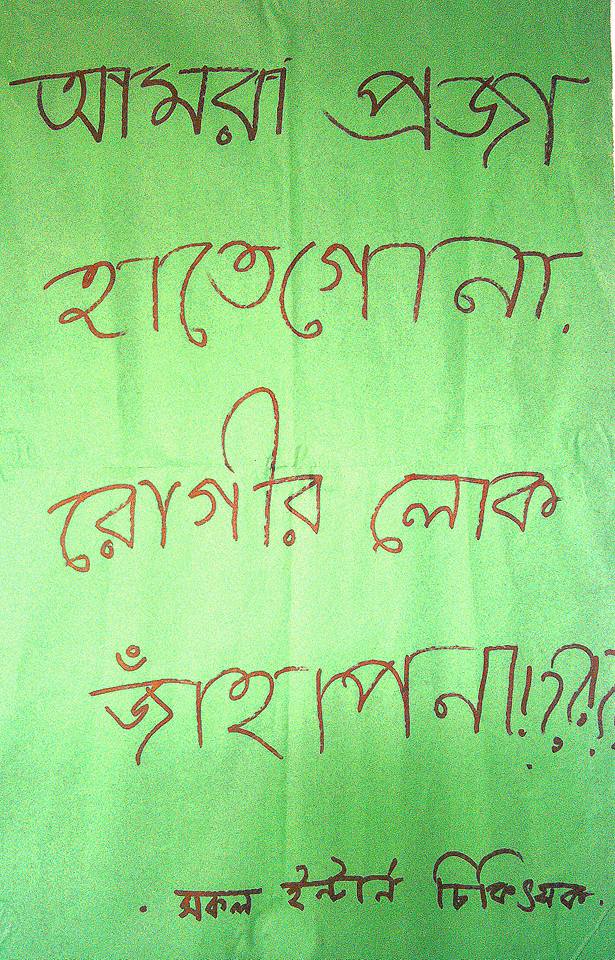 আমরা প্রজা
হাতেগোনা.
রোগীর লোক
জাঁহাপনা!!???
. সকল ইন্টার্ন চিকিৎসক.